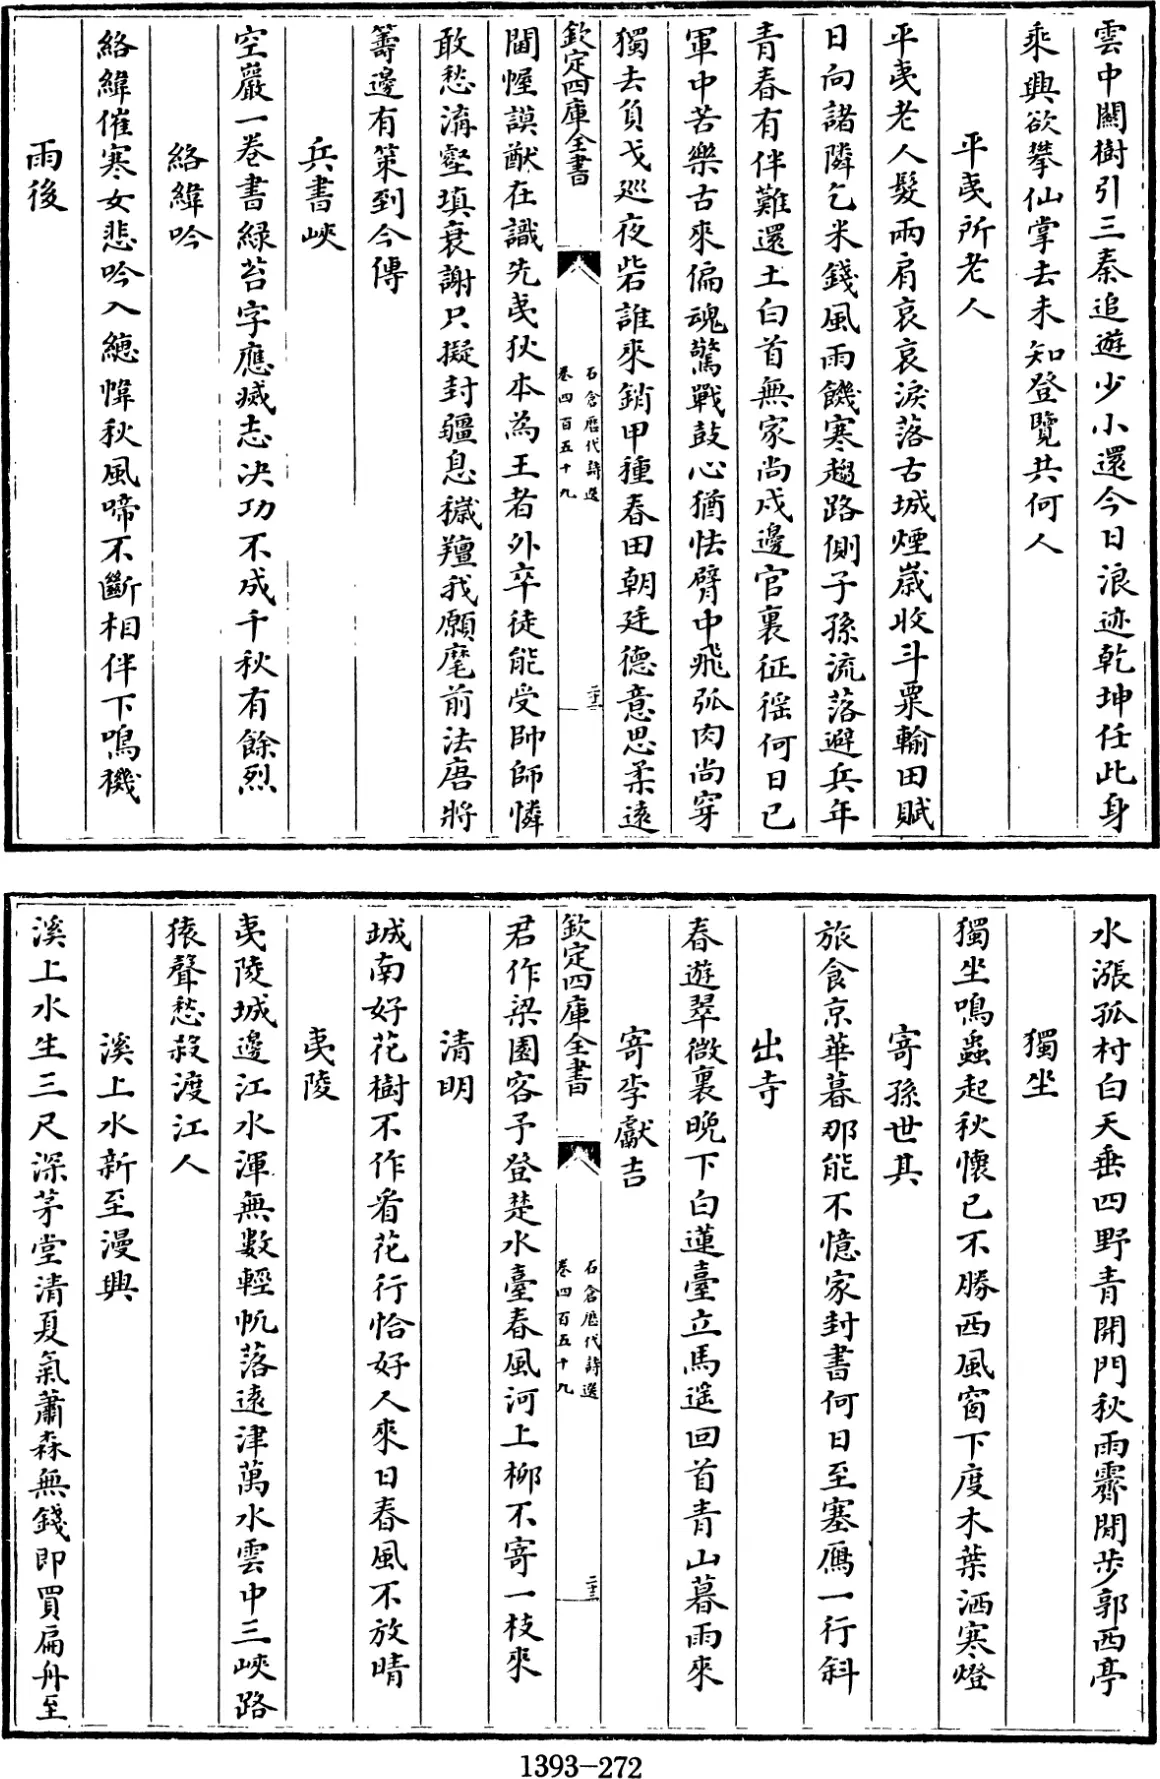 雲中闕樹引三秦追遊少小還今日浪迹乾坤任此身
乘興欲攀仙掌去未知登覽共何人
平夷所老人
平夷老人髮兩肩哀哀淚落古城煙歲收斗粟輸田賦
日向諸隣乞米錢風雨饑寒趨路側子孫流落避兵年
青春有伴難還土白首無家尚戍邊官裏征徭何日已
軍中苦樂古來偏魂驚戰鼓心猶怯臂中飛弧肉尚穿
獨去負戈巡夜砦誰來銷甲種春田朝廷德意思柔遠
欽定四庫全書
石倉歷代詩選
卷四百五十九
二十二
閫幄謨猷在識先夷狄本為王者外卒徒能受帥師憐
敢愁溝壑填衰謝只擬封疆息穢羶我願麾前法唐將
籌邊有策到今傳
兵書峽
空巖一卷書緑苔字應滅志决功不成千秋有餘烈
絡緯吟
絡緯催寒女悲吟入繐幃秋風啼不斷相伴下鳴機
雨後
水漲孤村白天垂四野青開門秋雨霽閒步郭西亭
獨坐
獨坐鳴蟲起秋懷已不勝西風窗下度木葉洒寒燈
寄孫世其
旅食京華暮那能不憶家封書何日至塞鴈一行斜
出寺
春遊翠微裏晚下白蓮臺立馬遥回首青山暮雨來
寄李獻吉
欽定四庫全書
石倉歷代詩選
卷四百五十九
二十三
君作梁園客予登楚水臺春風河上柳不寄一枝來
清明
城南好花樹不作看花行恰好人來日春風不放晴
夷陵
夷陵城邊江水渾無數輕帆落遠津萬水雲中三峽路
猿聲愁殺渡江人
溪上水新至漫興
溪上水生三尺深茅堂清夏氣蕭森無錢即買扁舟至
1393-272